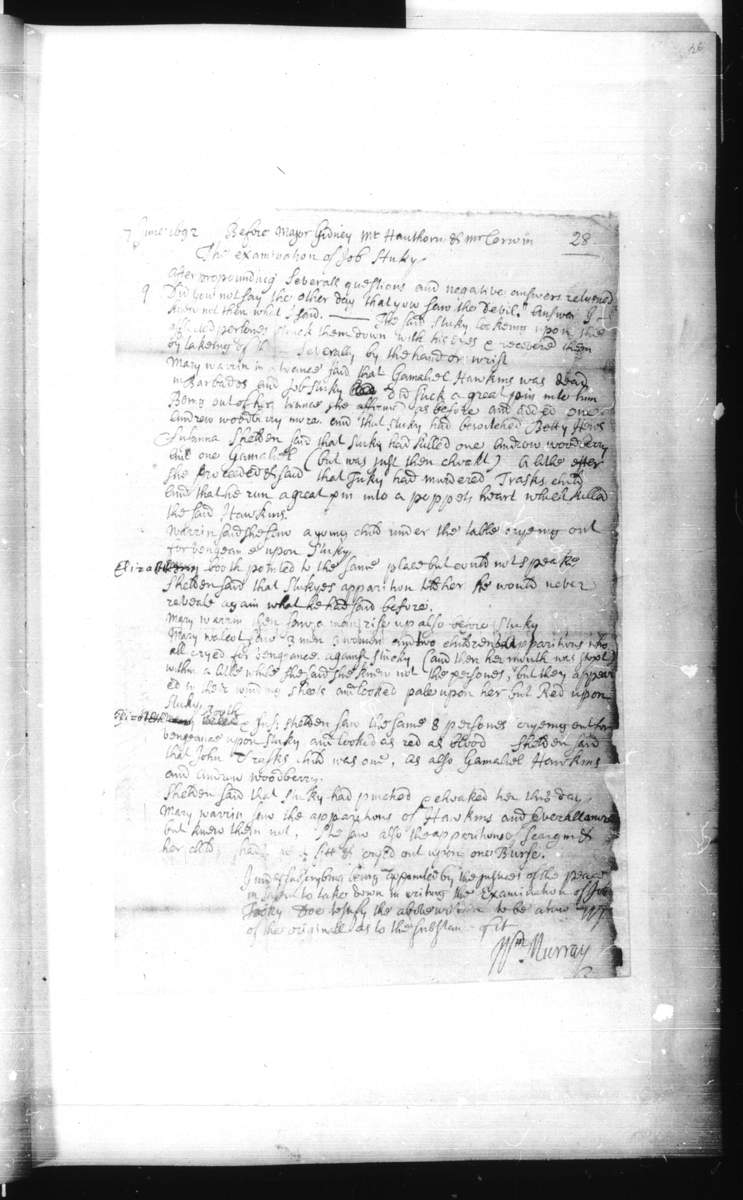 7 June 1692 Before Major Gidney Mr Hawthorn & Mr Corwin 28
The examination of Job Stuky
After propounding severall questions and negative answers returned
q Did you not say the other day that you saw the Devil. Answer I
knew not then what I said. — The said Stuky looking upon the
afflicted persones struck them down with his eyes & recovered them
by takeing of severally by the hand or wrist
Mary warrin in a trance said that Gamaliel Hawkins was dead
in Barbados and Job Stuky Did stick a great pin into him
Being out of her trance she affirmd as before and added one
Andrew woodberry more. and that Stuky had bewitched Betty Hews
Susanna Shelden said that Stuky had killed one Andrew woodberry
and one Gamaliel (but was just then chockt) A litle after
she proceeded & said that Stuky had murdered Trasks child
and that he run a great pin into a poppets heart which killd
the said Hawkins.
Warrin said she saw a young child under the table cryeing out
for vengeance upon Stuky
Elizabeth booth pointed to the same place but could not speake
Shelden said that Stukyes apparition told her he would never
reveale again what he had said before.
Mary warrin then saw a man rise up also before Stuky
Mary walcot saw 3 men 3 women and two children apparitions who
all cryed for vengeance against Stucky (and then her mouth was stopt)
within a litle while she said she knew not the persones, but they appear
ed in their winding sheets and looked pale upon her but Red upon
Stuky.
Elizabeth booth & Sus: shelden saw the same 8 persones cryeing out for
vengeance upon Stuky and looked as red as blood Shelden said
that John Trasks child was one, as also Gamaliel Hawkins
and Andrew woodberry.
Shelden said that Stuky had pinched & choaked her this day
Mary warrin saw the apparitions of Hawkins and severall more
but knew them not. She saw also the apparitions of Seargin &
her child, cryed out upon one Burse.
I underscrybing being appointed by the justices of the peace
in Salem to take down in wryting the Examination of Job
Tooky Doe testify the above written to be a true
of the originall as to the substance of it
Wm Murray